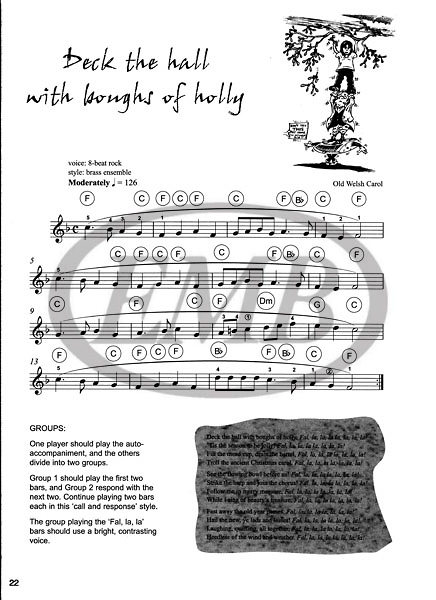 Deck the hall
with boughs of holly
voice: 8-beat rock
style: brass ensemble
Moderately ♩ = 126
Old Welsh Carol
F C F C F C F B♭ C F
5 4 3 2 1
5
C F C F C F B♭ C F
9
C F C F Dm G C
3 4 1
13
F C F B♭ F C F
EMB
GROUPS:
One player should play the auto-
accompaniment, and the others
divide into two groups.
Group 1 should play the first two
bars, and Group 2 respond with the
next two. Continue playing two bars
each in this 'call and response' style.
The group playing the 'Fal, la, la'
bars should use a bright, contrasting
voice.
Deck the hall with boughs of holly, Fal, la, la, la, la, la, la, la!
'Tis the season to be jolly! Fal, la, la, la, la, la, la, la!
Fill the mead cup, drain the barrel, Fal, la, la, la, la, la, la, la!
Troll the ancient Christmas carol. Fal, la, la, la, la, la, la, la!
See the flowing bowl before us! Fal, la, la, la, la, la, la, la!
Strike the harp and join the chorus! Fal, la, la, la, la, la, la, la!
Follow me in merry measure, Fal, la, la, la, la, la, la, la!
While I sing of beauty's treasure. Fal, la, la, la, la, la, la, la!
Fast away the old year passes, Fal, la, la, la, la, la, la, la!
Hail the new, ye lads and lasses! Fal, la, la, la, la, la, la, la!
Laughing, quaffing, all together, Fal, la, la, la, la, la, la, la!
Heedless of the wind and weather. Fal, la, la, la, la, la, la, la!
22